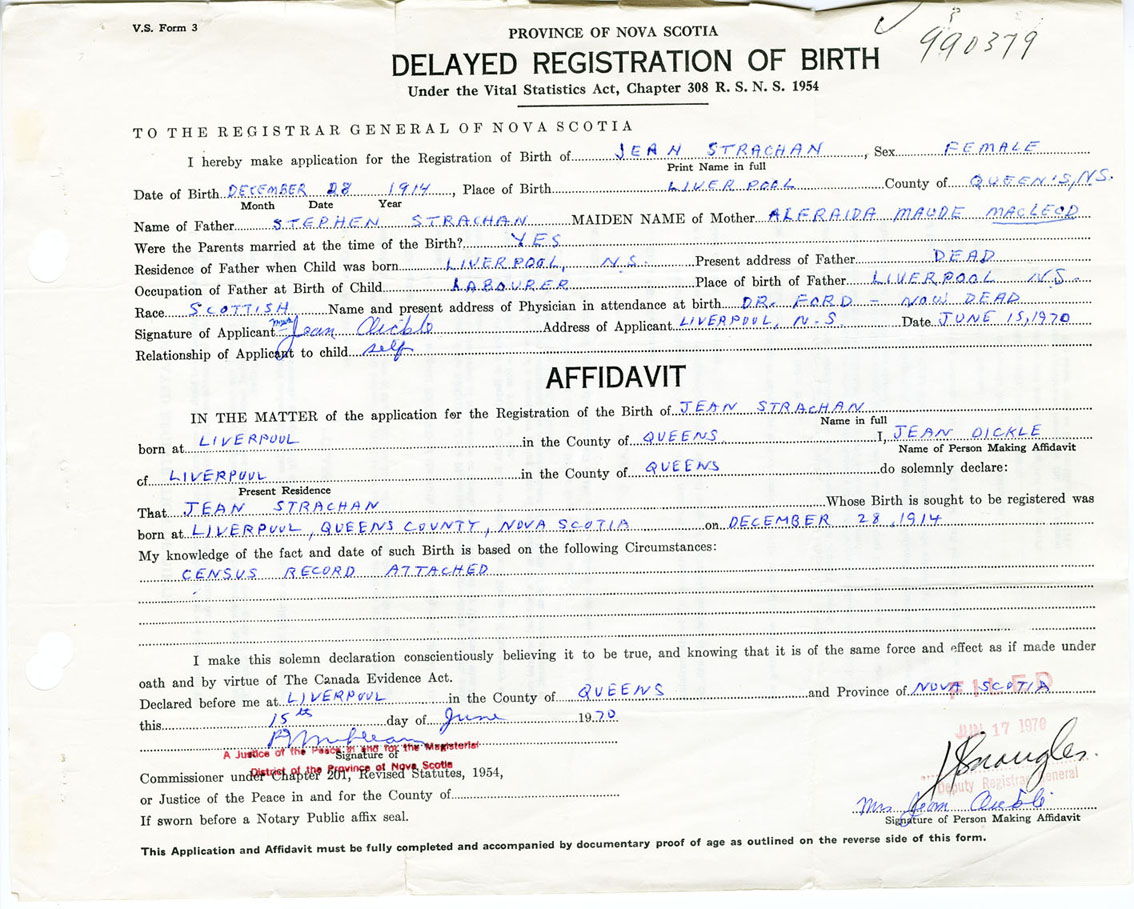 V.S. Form 3
990379
PROVINCE OF NOVA SCOTIA
DELAYED REGISTRATION OF BIRTH
Under the Vital Statistics Act, Chapter 308 R. S. N. S. 1954
TO THE REGISTRAR GENERAL OF NOVA SCOTIA
I hereby make application for the Registration of Birth of JEAN STRACHAN, Sex FEMALE
Print Name in full
Date of Birth DECEMBER 28 1914, Place of Birth LIVERPOOL County of QUEEN'S, N.S.
Month Date Year
Name of Father STEPHEN STRACHAN MAIDEN NAME of Mother ALFRAIDA MAUDE MACLEOD
Were the Parents married at the time of the Birth? YES
Residence of Father when Child was born LIVERPOOL, N.S. Present address of Father DEAD
Occupation of Father at Birth of Child LABOURER Place of birth of Father LIVERPOOL N.S.
Race SCOTTISH Name and present address of Physician in attendance at birth DR. FORD - NOW DEAD
Signature of Applicant Mrs Jean Dickle Address of Applicant LIVERPOOL, N.S. Date JUNE 15, 1970
Relationship of Applicant to child self
AFFIDAVIT
IN THE MATTER of the application for the Registration of the Birth of JEAN STRACHAN
Name in full
born at LIVERPOOL in the County of QUEENS I, JEAN DICKLE
Name of Person Making Affidavit
of LIVERPOOL in the County of QUEENS do solemnly declare:
Present Residence
That JEAN STRACHAN Whose Birth is sought to be registered was
born at LIVERPOOL, QUEENS COUNTY, NOVA SCOTIA on DECEMBER 28, 1914
My knowledge of the fact and date of such Birth is based on the following Circumstances:
CENSUS RECORD ATTACHED
I make this solemn declaration conscientiously believing it to be true, and knowing that it is of the same force and effect as if made under
oath and by virtue of The Canada Evidence Act.
Declared before me at LIVERPOOL in the County of QUEENS and Province of NOVA SCOTIA
FILED
this 15th day of June 1970
JUN 17 1970
A Justice of the Peace in and for the Magisterial
Signature of
District of the Province of Nova Scotia
Commissioner under Chapter 201, Revised Statutes, 1954,
Deputy Registrar General
or Justice of the Peace in and for the County of
Mrs Jean Dickle
Signature of Person Making Affidavit
If sworn before a Notary Public affix seal.
This Application and Affidavit must be fully completed and accompanied by documentary proof of age as outlined on the reverse side of this form.